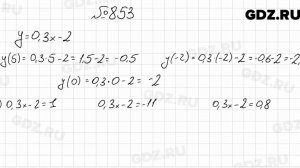 №853 GDZ.RU
y=0,3x-2
y(5)=0,3·5-2=1.5-2=-0.5 y(-2)=0,3(-2)-2=-0.6-2=-2,
y(0)=0,3·0-2=-2
) 0,3x-2=1 0,3x-2=-11 0,3x-2=0,8